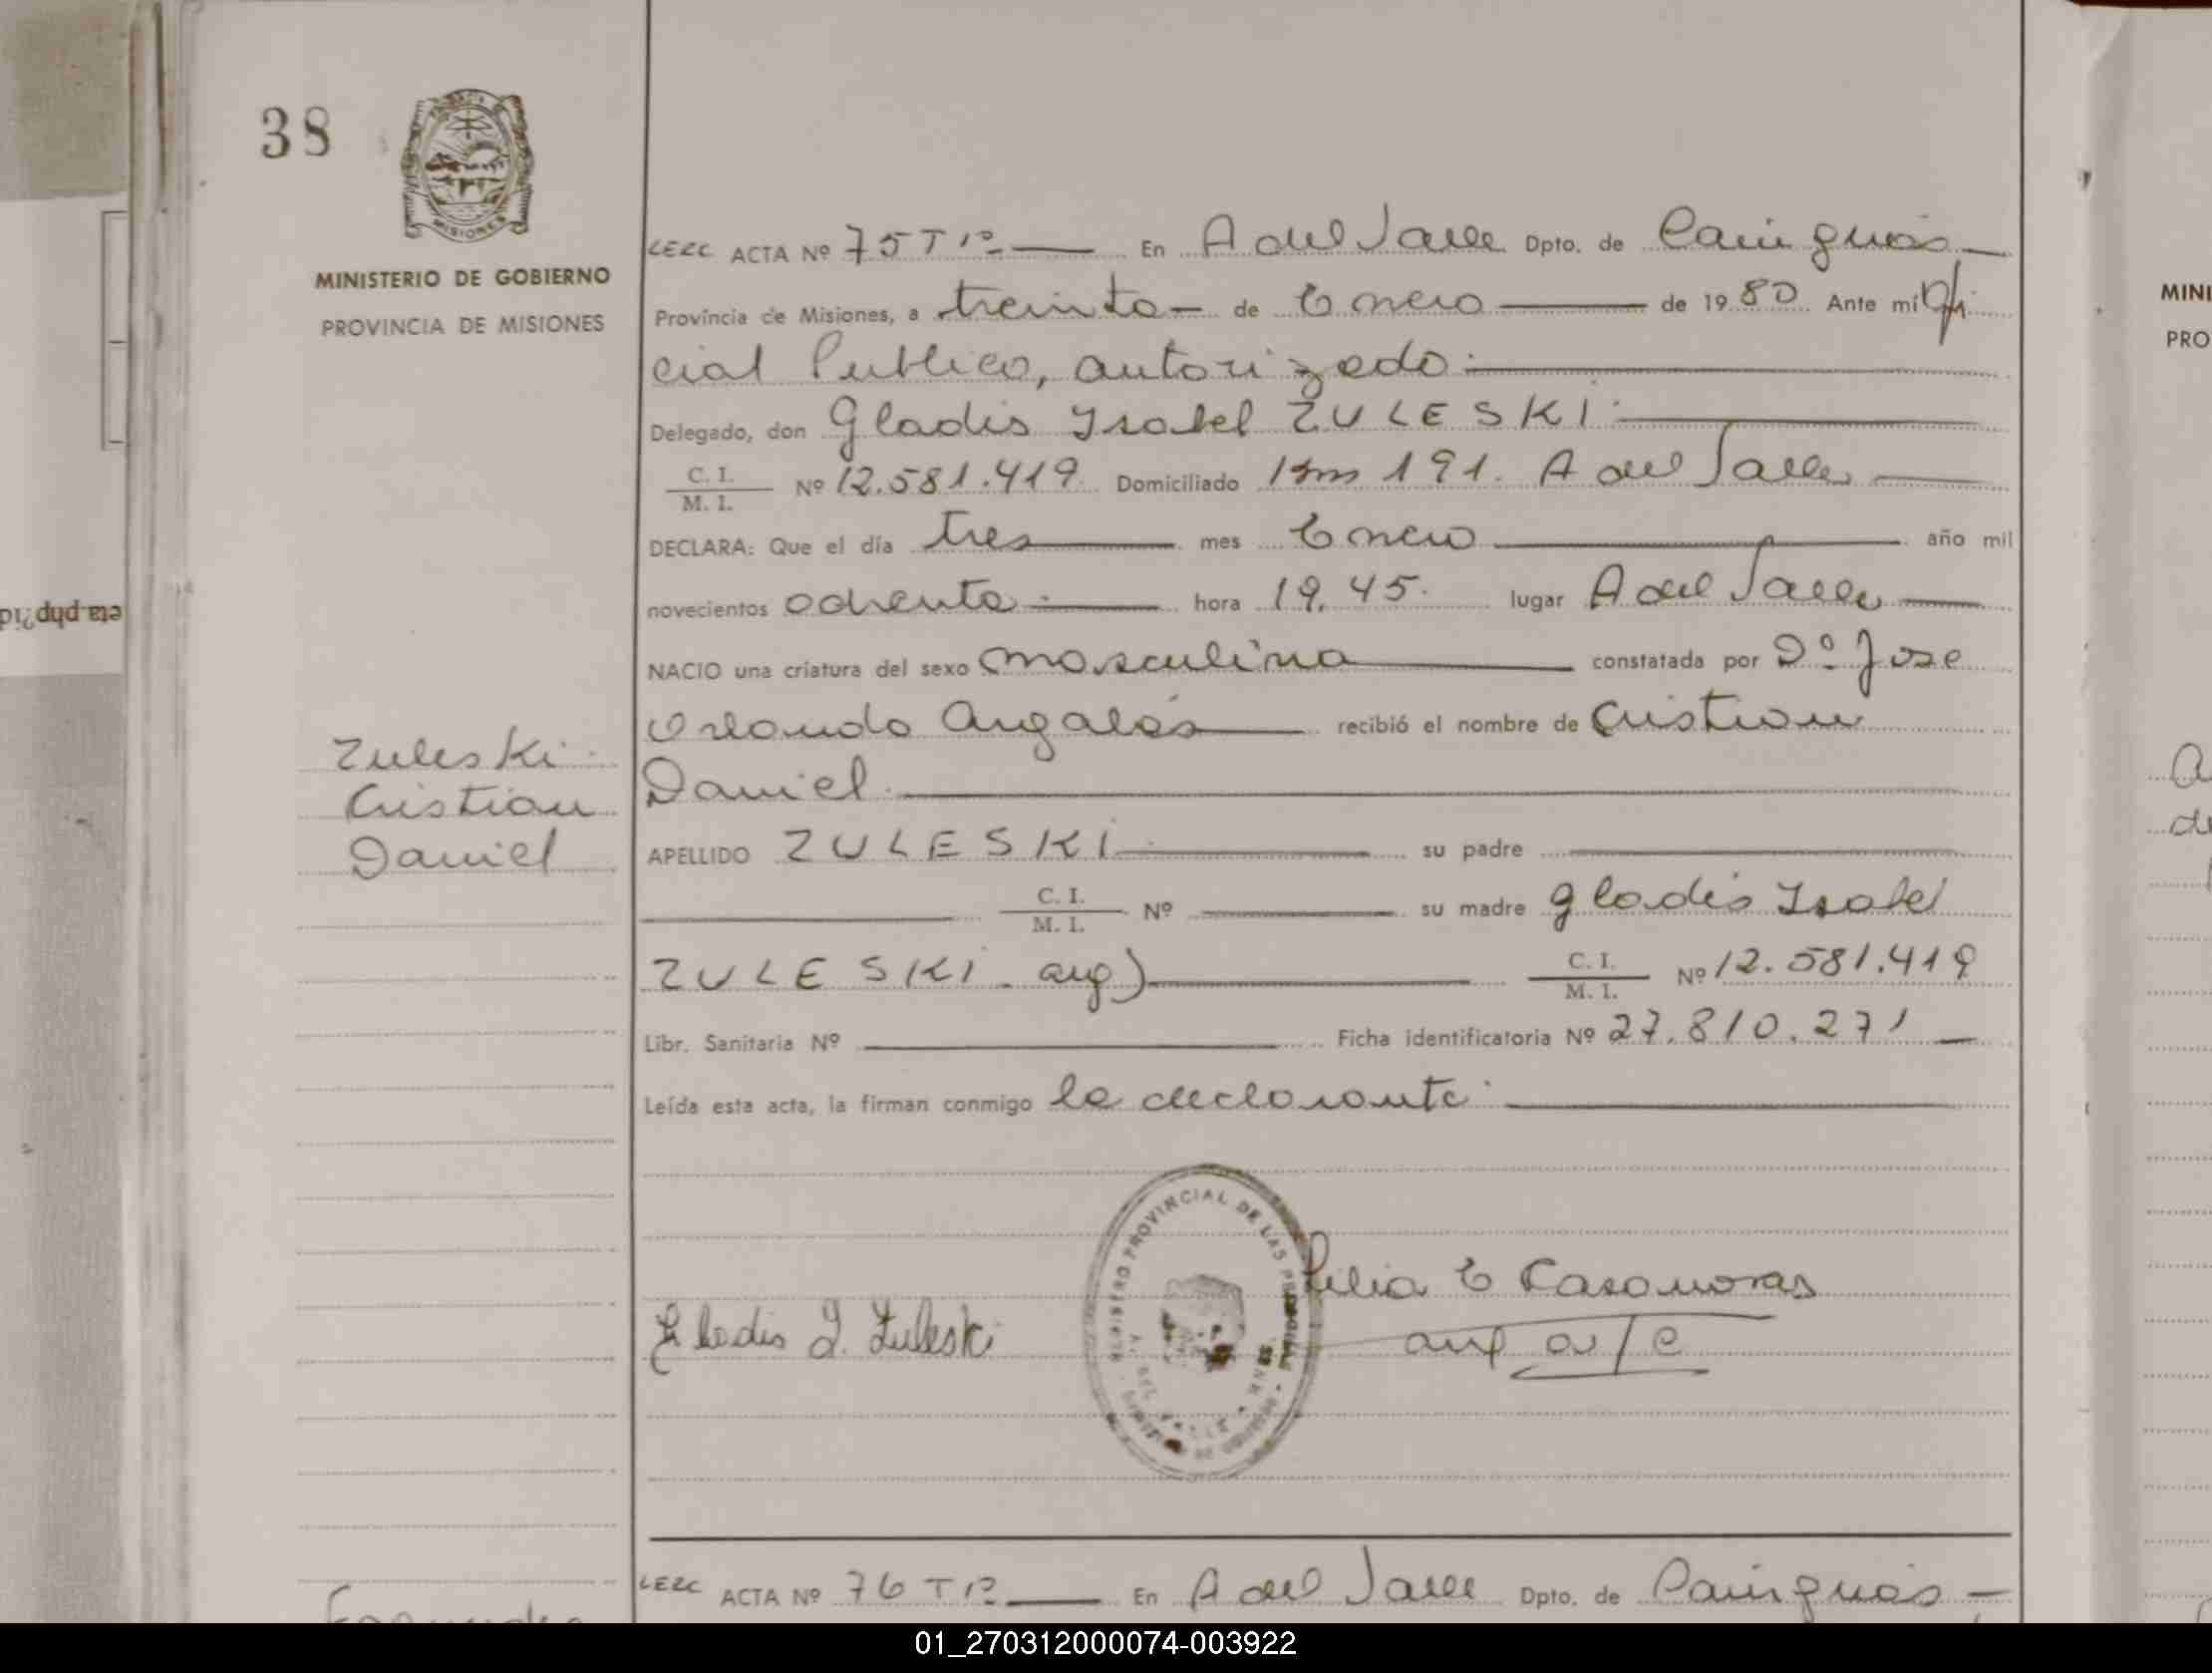 38
MISIONES
MINISTERIO DE GOBIERNO
PROVINCIA DE MISIONES
LEZC ACTA Nº 75 T 1º En A del Valle Dpto. de Cainguás
Provincia de Misiones, a treinta de Enero de 1980 Ante mi Ofi
cial Publico, autorizado
Delegado, don Gladis Isabel ZULESKI
C. I. / M. I. Nº 12.581.419 Domiciliado Km 191. A del Valle
DECLARA: Que el día tres mes Enero año mil
novecientos ochenta hora 19.45. lugar A del Valle
NACIO una criatura del sexo masculino constatada por Dº Jose
Orlando recibió el nombre de Cristian
Daniel
Zuleski
Cristian
Daniel
APELLIDO ZULESKI su padre
C. I. / M. I. Nº su madre Gladis Isabel
ZULESKI arg) C. I. / M. I. Nº 12.581.419
Libr. Sanitaria Nº Ficha identificatoria Nº 27.810.271
Leída esta acta, la firman conmigo la declarante
PROVINCIAL DE LAS
Gladis I. Zuleski
LEZC ACTA Nº 76 T 1º En A del Valle Dpto. de Cainguás
MINI
PRO
eta.php?id
01_270312000074-003922